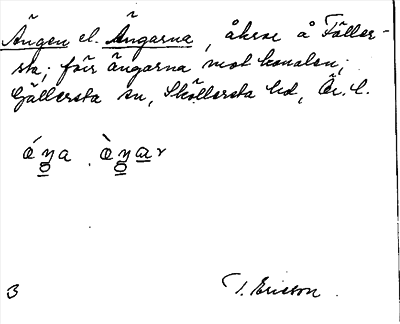 Ängen el. Ängarna, åkrar å Föller-
sta; förr ängarna mot kanalen;
Gällersta sn, Sköllersta hd, Ör. l.
3
T. Ericson